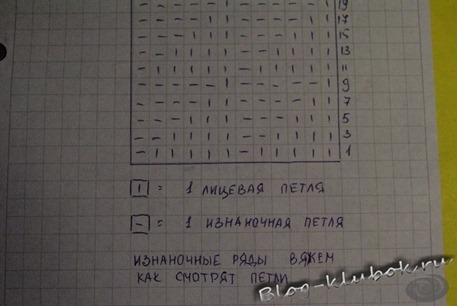 - - - - - I - - - - - I 19
- - - - I I - - - - I I 17
- - - I I I - - - I I I 15
- - I I I I - - I I I I 13
- I I I I I - I I I I I 11
- - - - - I - - - - - I 9
- - - - I I - - - - I I 7
- - - I I I - - - I I I 5
- - I I I I - - I I I I 3
- I I I I I - I I I I I 1
I = 1 ЛИЦЕВАЯ ПЕТЛЯ
- = 1 ИЗНАНОЧНАЯ ПЕТЛЯ
ИЗНАНОЧНЫЕ РЯДЫ ВЯЖЕМ
КАК СМОТРЯТ ПЕТЛИ
Bloo-klubok.ru